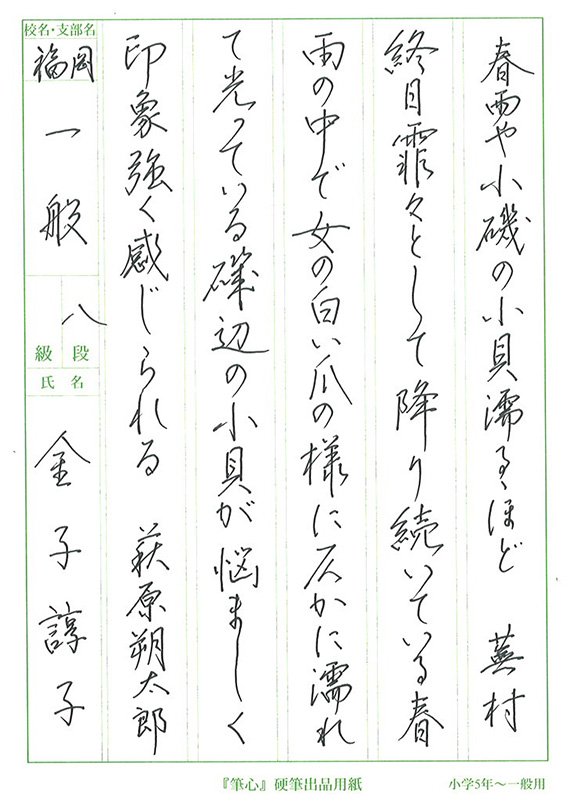 春雨や小磯の小貝濡るゝほど　蕪村
終日霏々として降り続いている春
雨の中で女の白い爪の様に仄かに濡れ
て光っている磯辺の小貝が悩ましく
印象強く感じられる　萩原朔太郎
校名・支部名
福岡
一般
八
級 段
氏名
金子諄子
『筆心』硬筆出品用紙
小学5年〜一般用